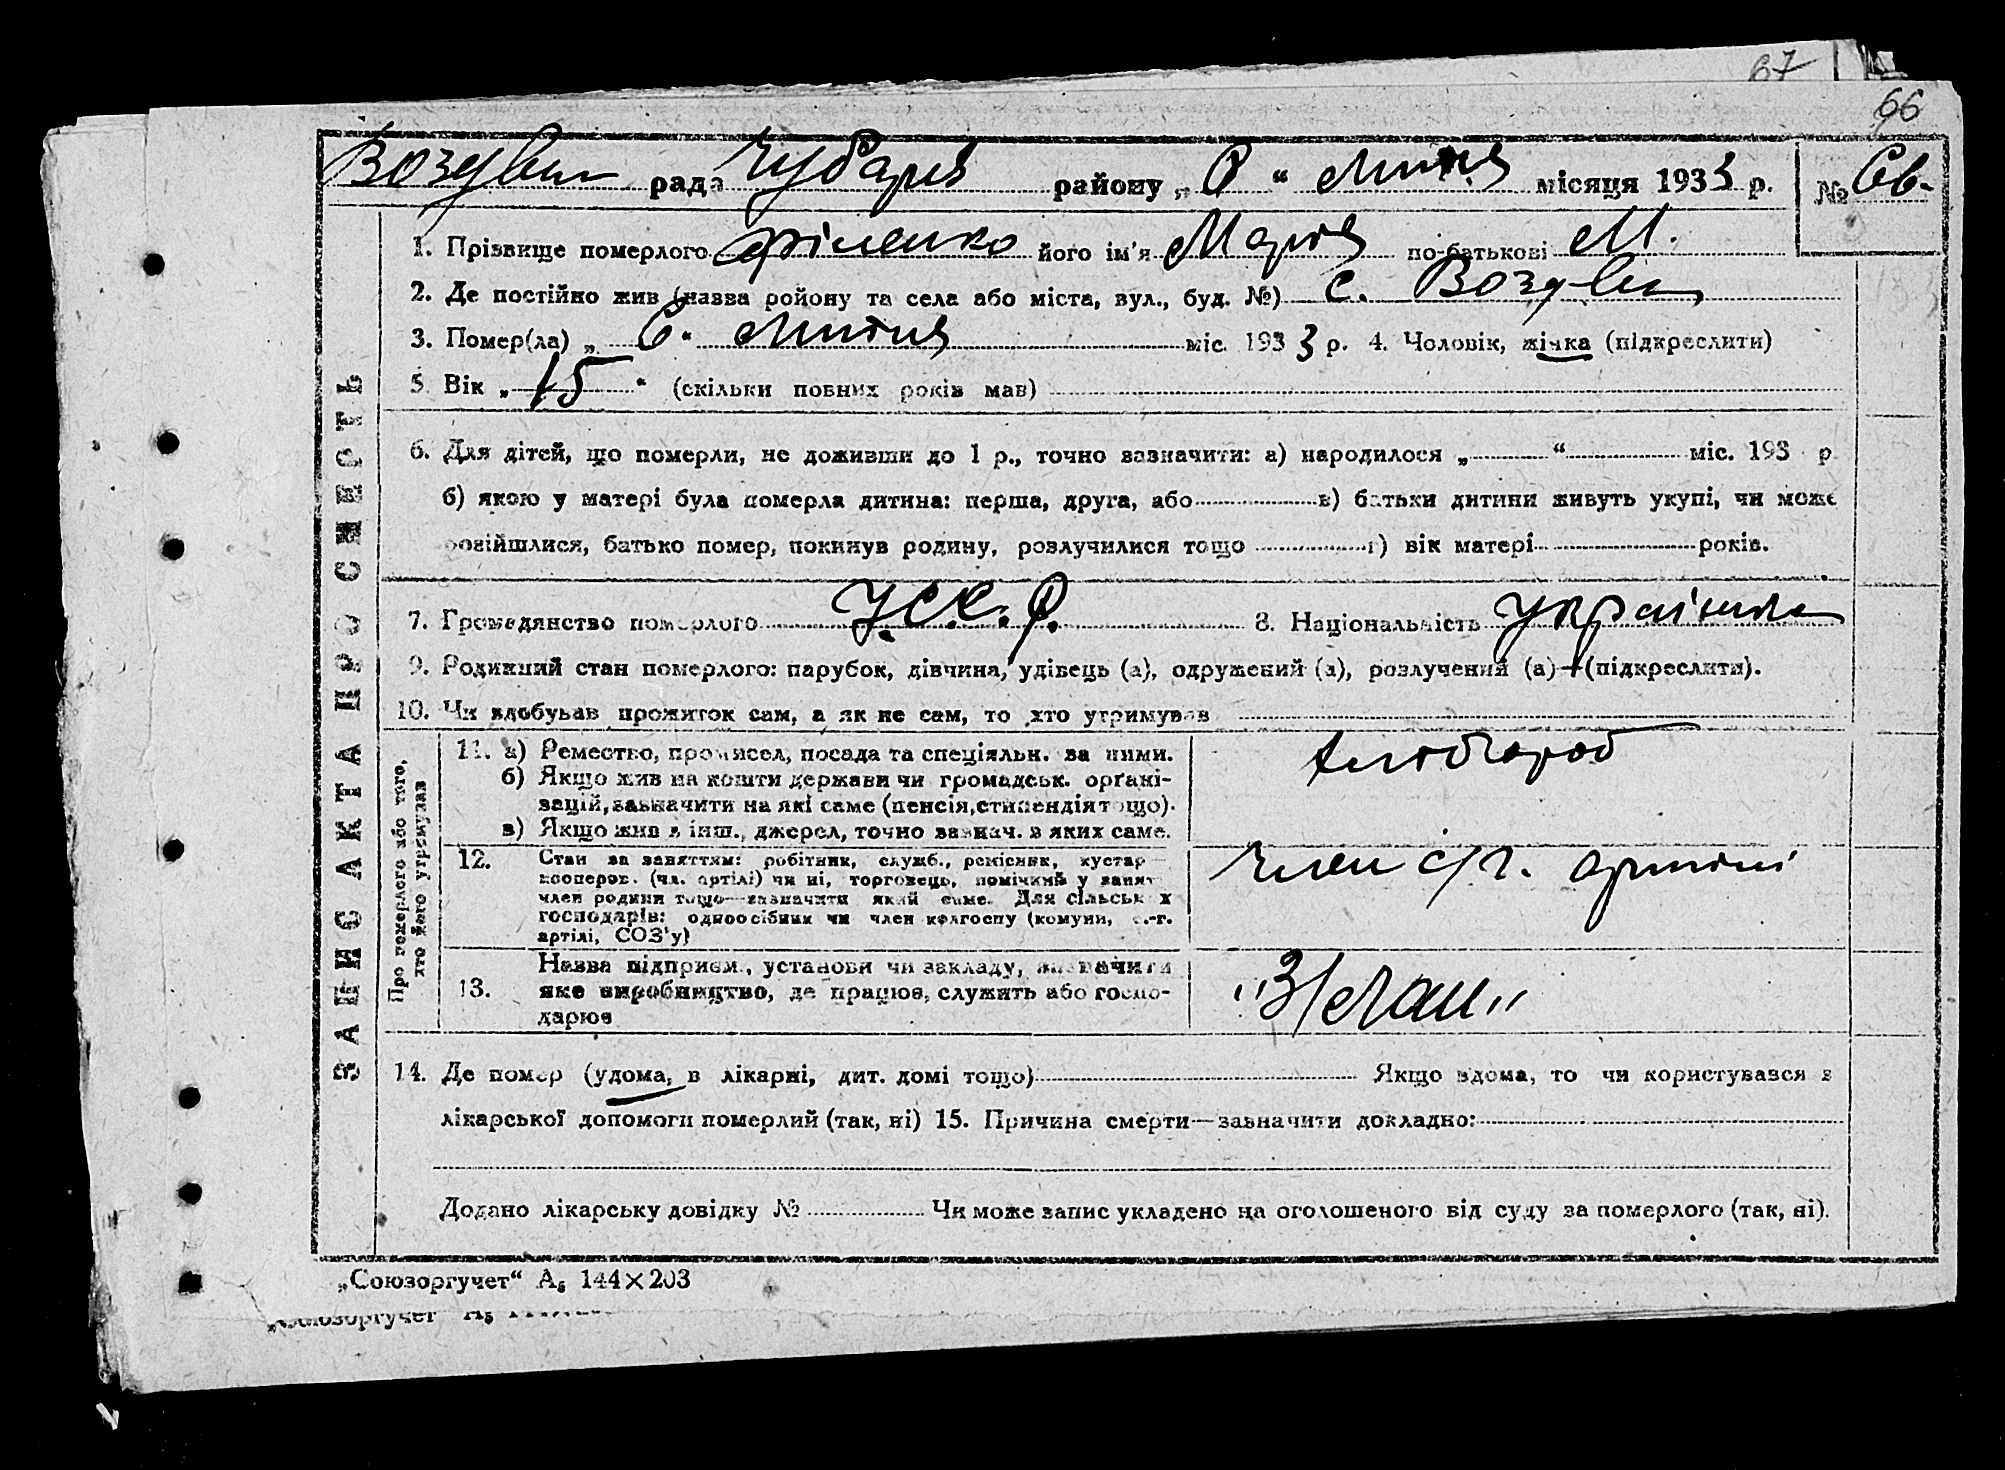 67
66
Воздвиж рада Чубарів району „ 6 “ липня місяця 1933 р. № 66.
1. Прізвище померлого Філенко його ім'я Марія по-батькові М.
2. Де постійно жив (назва ройону та села або міста, вул., буд. №) с. Воздвиж
3. Помер(ла) „ 6 “ липня міс. 1933 р. 4. Чоловік, жінка (підкреслити)
5. Вік „ 15 “ (скільки повних років мав)
6. Для дітей, що померли, не доживши до 1 р., точно зазначити: а) народилося „ “ міс. 193 р.
б) якою у матері була померла дитина: перша, друга, або в) батьки дитини живуть укупі, чи може
розійшлися, батько помер, покинув родину, розлучилися тощо г) вік матері років.
7. Громадянство померлого У.С.С.Р. 8. Національність Українка
9. Родинний стан померлого: парубок, дівчина, удівець (а), одружений (а), розлучений (а)—(підкреслити).
10. Чи здобував прожиток сам, а як не сам, то хто утримував
ЗАПИС АКТА ПРО СМЕРТЬ
Про померлого або того,
хто його утримував
11. а) Ремество, промисел, посада та спеціяльн. за ними.
б) Якщо жив на кошти держави чи громадськ. орґані-
зацій, зазначити на які саме (пенсія, стипендія тощо).
в) Якщо жив з інш., джерел, точно зазнач. з яких саме.
хлібороб
12. Стан за заняттям: робітник, служб., ремісник, кустар
кооперов. (чл. артілі) чи ні, торговець, помічний у занят.
член родини тощо—зазначити який саме. Для сільськ х
господарів: одноосібник чи член колгоспу (комуни, с.-г.
артілі, СОЗ'у)
Член с/г. артілі
13. Назва підприєм., установи чи закладу, зазначити
яке виробництво, де працює, служить або госпо-
дарює
14. Де помер (удома, в лікарні, дит. домі тощо) Якщо вдома, то чи користувався з
лікарської допомоги померлий (так, ні) 15. Причина смерти—зазначити докладно:
Додано лікарську довідку № Чи може запис укладено на оголошеного від суду за померлого (так, ні).
„Союзоргучет“ А₅ 144×203
„Союзоргучет А₅